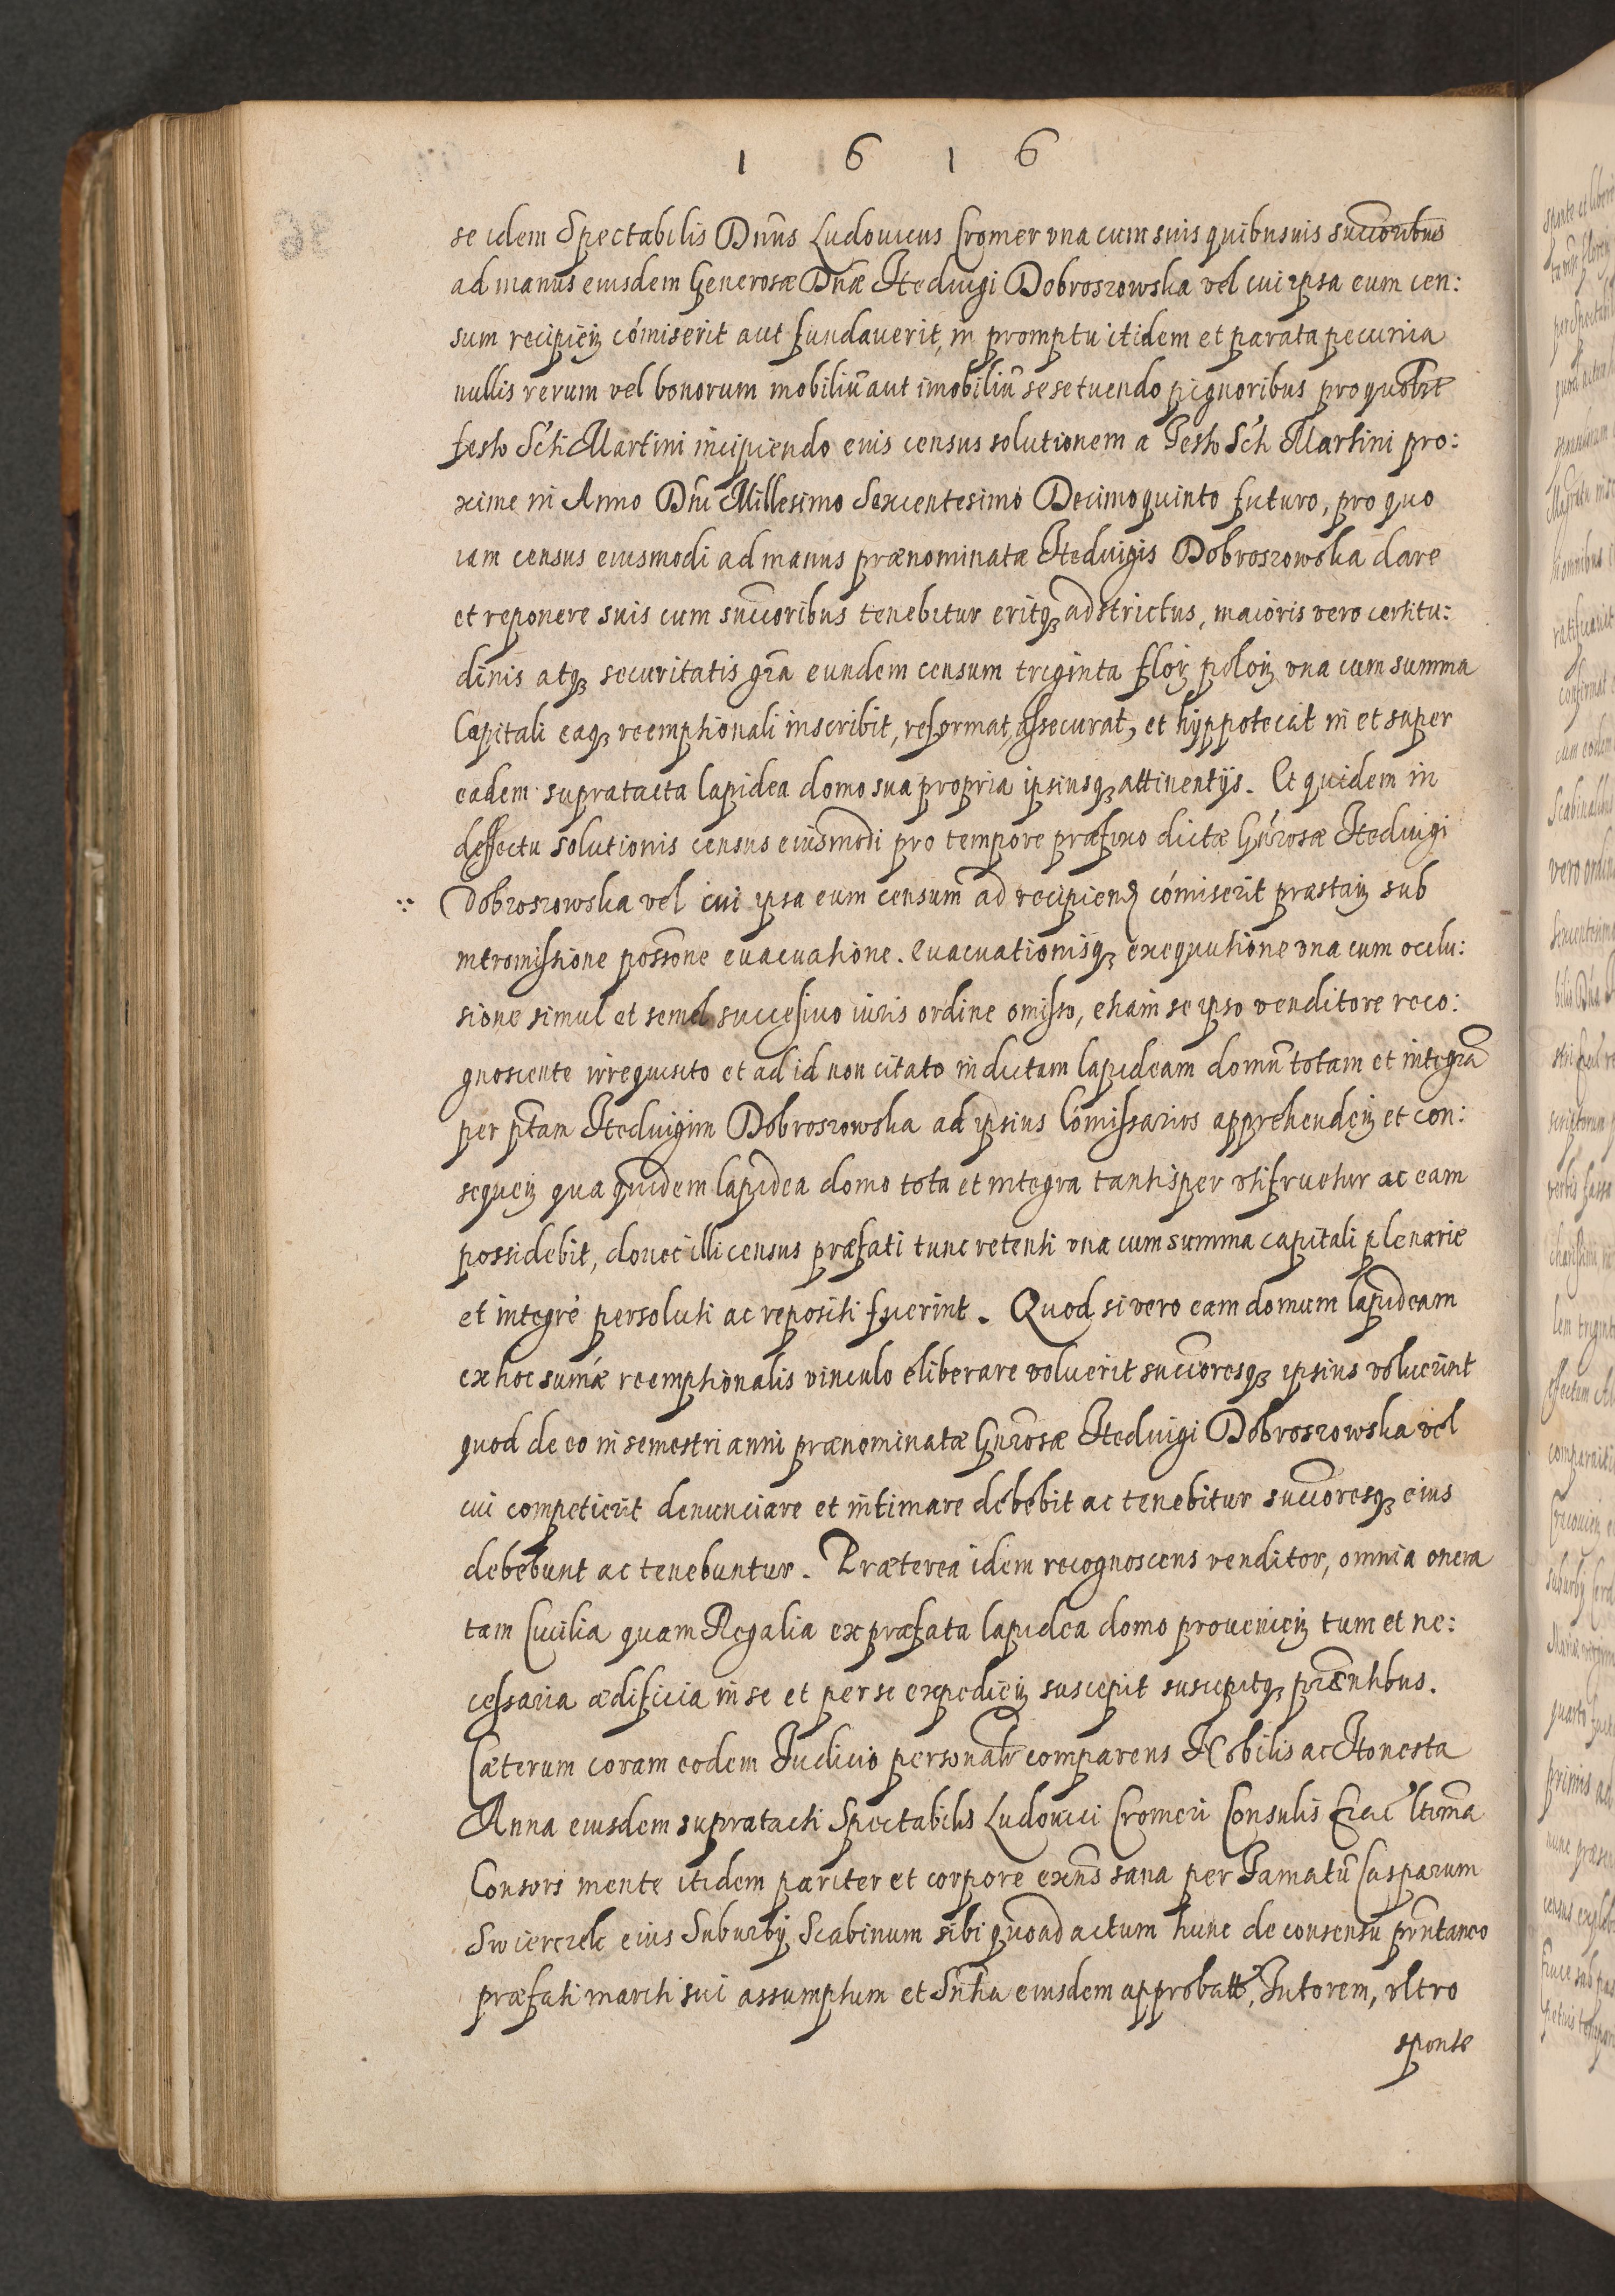 1 6 1 6
se idem Spectabilis Dn̄us Ludouicus Cromer vna cum suis quibusuis succ̄oribus
ad manus eiusdem Generosæ Dn̄æ Heduigi Dobroszowska vel cui ipsa eum cen:
sum recipień com̄iserit aut fundauerit, in promptu itidem et parata pecunia
nullis rerum vel bonorum mobiliū aut im̄obiliū sese tuendo pignoribus pro quolibt
festo Scti Martini incipiendo euis census solutionem a Festo Scti Martini pro:
xime in Anno Dn̄i Millesimo Sexcentesimo Decimoquinto futuro, pro quo
iam census eiusmodi ad manus prænominatæ Heduigis Dobroszowska dare
et reponere suis cum succ̄oribus tenebitur eritqꝫ adstrictus, maioris vero certitu:
dinis atqꝫ securitatis gr̄a eundem censum triginta floɼ poloń vna cum summa
Capitali eaqꝫ reemptionali inscribit, reformat, assecurat, et hyppotecat in et super
eadem supratacta lapidea domo sua propria ipsiusqꝫ attinentijs. Et quidem in
deffectu solutionis census eiusmodi pro tempore præfixo dictæ Gn̄rosæ Heduigi
Dobroszowska vel cui ipsa eum censum ad recipiend com̄iserit præstań sub
intromissione poss̄one euacuatione. euacuationisqꝫ exequutione vna cum occlu:
sione simul et semel successiuo iuris ordine omisso, etiam se ipso venditore reco:
gnoscente irrequisito et ad id non citato in dictam lapideam domū totam et integrā
per p̄tam Heduigim Dobroszowska ad ipsius Com̄issarios apprehendeń et con:
sequeń qua quidem lapidea domo tota et integra tantisper vtifruetur ac eam
possidebit, donec illi census præfati tunc retenti vna cum summa capitali plenarie
et integrè persoluti ac repositi fuerint. Quod si vero eam domum lapideam
ex hoc sum̄æ reemptionalis vinculo eliberare voluerit succ̄oresqꝫ ipsius voluerint
quod de eo in semestri anni prænominatæ Gn̄rosæ Heduigi Dobroszowska vel
cui competierit denunciare et intimare debebit ac tenebitur succ̄oresqꝫ eius
debebunt ac tenebuntur. Præterea idem recognoscens venditor, omnia onera
tam Ciuilia quam Regalia ex præfata lapidea domo prouenień tum et ne:
cessaria ædificia in se et per se expedień suscepit suscipitqꝫ præn̄tibus.
Cæterum coram eodem Iudicio personalr comparens Nobilis ac Honesta
Anna eiusdem supratacti Spectabilis Ludouici Cromeri Consulis Crac ltima
Consors mente itidem pariter et corpore exn̄s sana per Famatū Casparum
Swierczek eius Suburbij Scabinum sibi quoad actum hunc de consensu prn̄taneo
præfati mariti sui assumptum et Sn̄tia eiusdem approbatt, Tutorem, vltro
sponte